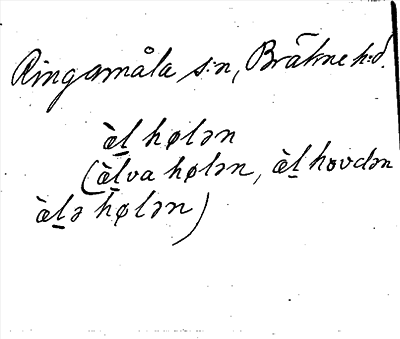 Ringamåla s:n, Bräkne h:d.
àl̠ hølən
(àl̠va hølən, àl̠ hovdən
àl̠ə hølən)